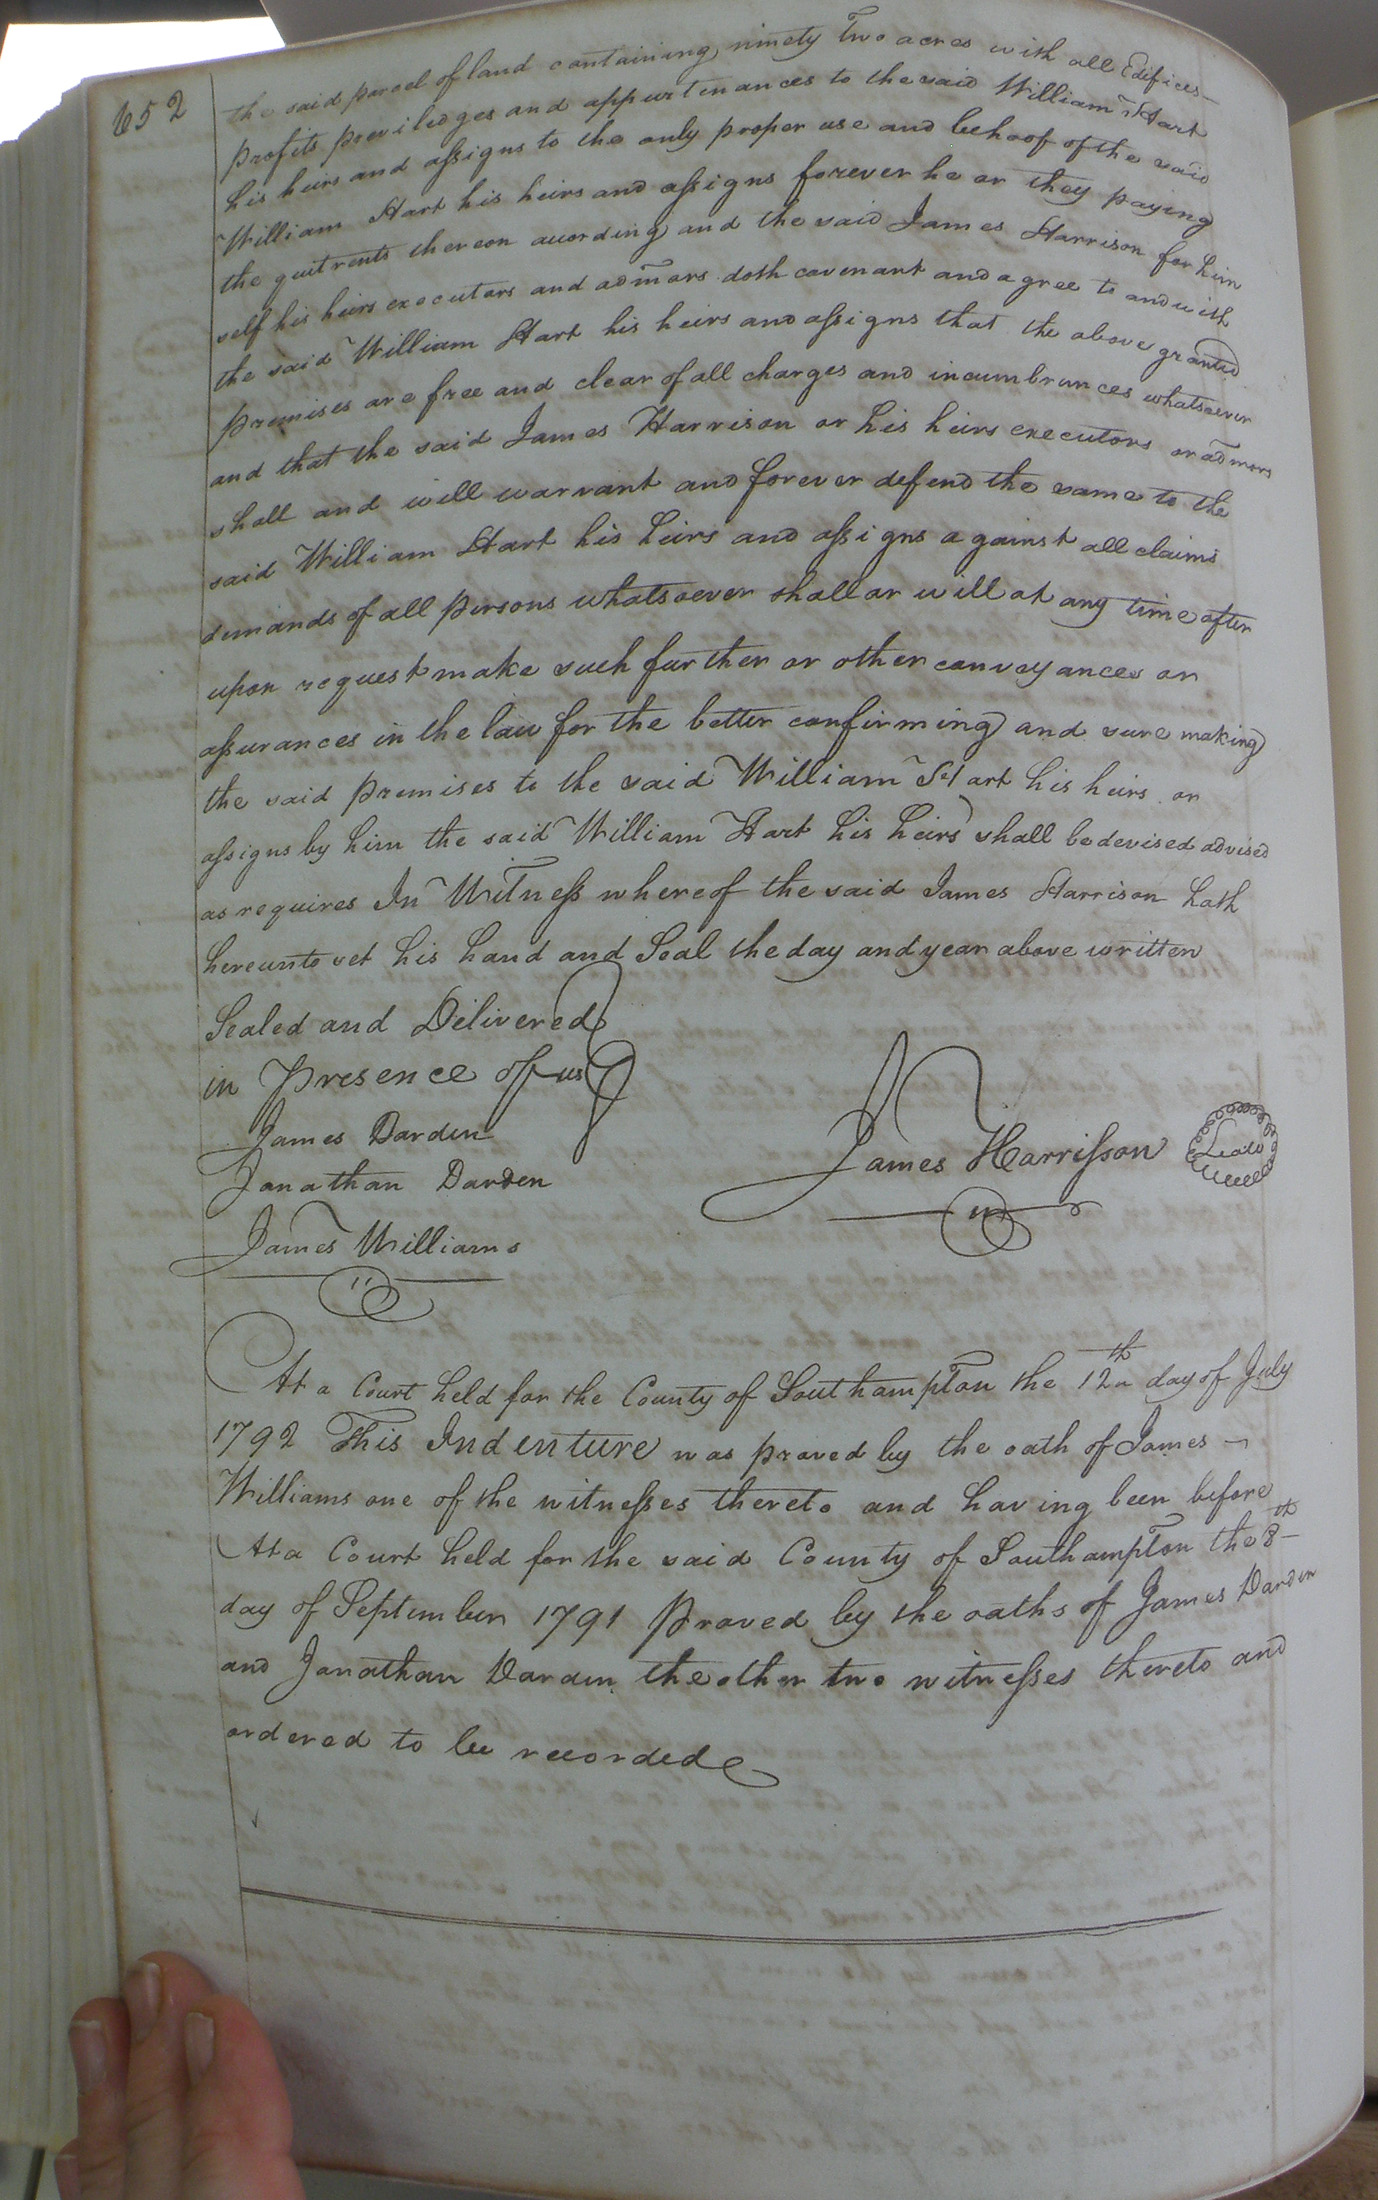 652
the said parcel of land containing ninety two acres with all Edifices
profits previledges and appurtenances to the said William Hart
his heirs and assigns to the only proper use and behoof of the said
William Hart his heirs and assigns forever he or they paying
the quitrents thereon according and the said James Harrison for him
self his heirs executors and admors doth covenant and agree to and with
the said William Hart his heirs and assigns that the above granted
premises are free and clear of all charges and incumbrances whatsoever
and that the said James Harrison or his heirs executors or admors
shall and will warrant and forever defend the same to the
said William Hart his heirs and assigns against all claims
demands of all persons whatsoever shall or will at any time after
upon request make such further or other conveyances or
assurances in the law for the better confirming and sure making
the said premises to the said William Hart his heirs or
assigns by him the said William Hart his heirs shall be devised advised
as requires In Witness whereof the said James Harrison hath
hereunto set his hand and Seal the day and year above written
Sealed and Delivered
in Presence of us
James Darden
Jonathan Darden
James Williams
James Harrisson Seal
At a Court held for the County of Southampton the 12th day of July
1792 This Indenture was proved by the oath of James
Williams one of the witnesses thereto and having been before
At a Court held for the said County of Southampton the 8th
day of September 1791 Proved by the oaths of James Darden
and Jonathan Darden the other two witnesses thereto and
ordered to be recorded